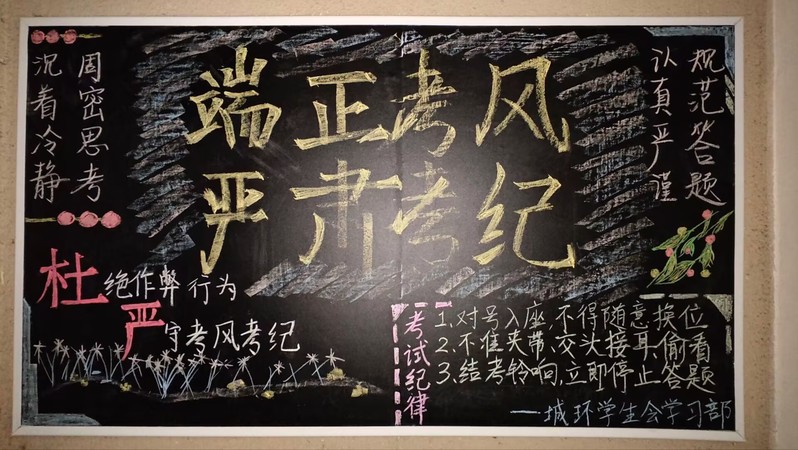 端正考风
严肃考纪
沉着冷静
周密思考
认真严谨
规范答题
杜绝作弊行为
严守考风考纪
考试纪律
1.对号入座,不得随意换位
2.不准夹带、交头接耳、偷看
3.结考铃响,立即停止答题
——城环学生会学习部